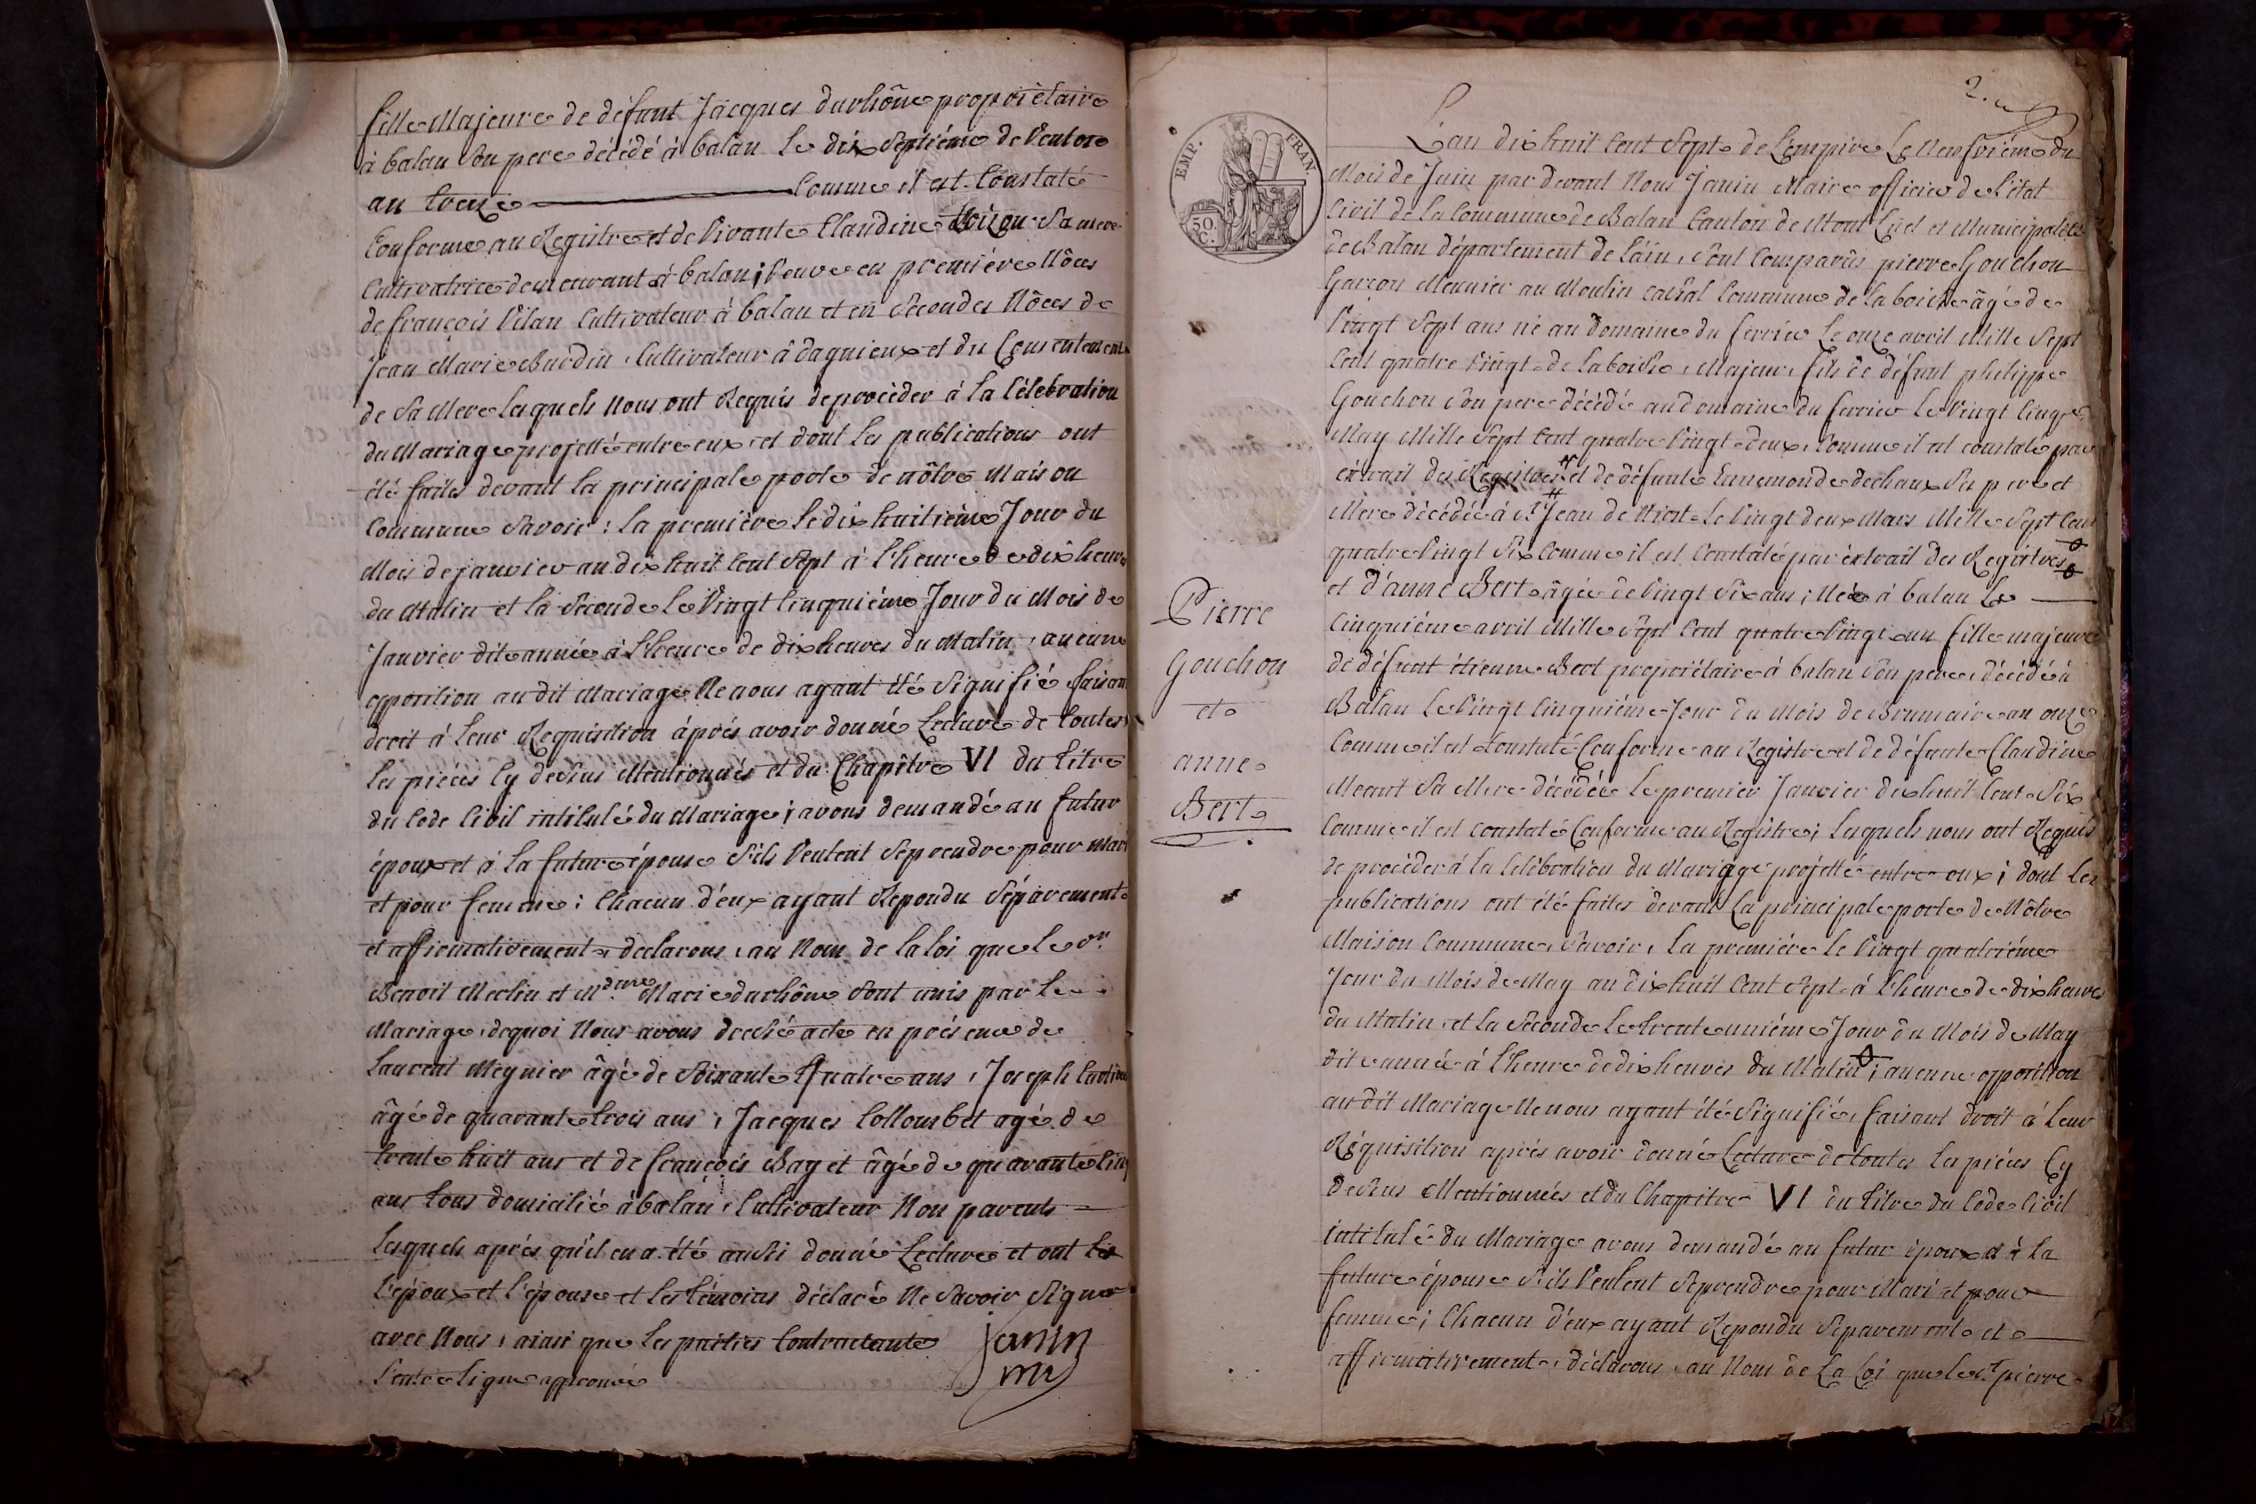 fille Majeure de défunt Jacques durhône propriètaire
à balan son pere décédé à balan le dix Septiéme de Ventose
an treize comme il est Constaté
Conforme au Registre et de vivante Claudine Sa mere
Cultivatrice demeurant à balan; veuve en premiére Nôces
de françois vilan Cultivateur à balan et en Secondes Nôces de
Jean Marie Burdin, Cultivateur à dagnieux et du Consentement
de Sa Mere lesquels Nous ont Requis de procéder à la Célébration
du Mariage projetté entre eux, et dont les publications ont
été faites devant la principale porte de nôtre Maison
Commune Savoir: la premiére le dix huitiéme Jour du
Mois de janvier an dix huit cent Sept à l'heure de dix heures
du Matin et la Seconde le Vingt Cinquiéme Jour du Mois de
Janvier dite année à l'heure de dix heures du Matin, aucune
opposition au dit Mariage Ne nous ayant été Signifié faisant
droit à leur Requisition aprés avoir donné Lecture de toutes
les piéces Cy dessus Mentionnés et du Chapitre VI du titre
du Code Civil intitulé du Mariage; avons demandé au futur
époux et à la future épouse S'ils Veulent Se prendre pour Mari
et pour femme; Chacun d'eux ayant Repondu Séparement
et affirmativement, déclarons, au Nom de la loi que le Sr
Benoit Merlin et Mdme Marie durhône Sont unis par le
Mariage, de quoi Nous avons dressé acte en présence de
Laurent Meynier âgé de Soixante Quatre ans, Joseph
âgé de quarante trois ans, Jacques Collombet agé de
trente huit ans et de françois Bayet âgé de quarante Cinq
ans tous domicilié à balan, Cultivateur Non parents
lesquels aprés qu'il en a été aussi donné Lecture et ont
l'époux et l'épouse et les témoins déclaré Ne Savoir Signer
avec Nous, ainsi que les parties Contractante
approuvée
janin
EMP. FRAN.
50 C.
L'an dix huit Cent Sept de L'empire Le Neufviéme du
Mois de Juin par devant Nous Janin Maire officier de l'état
Civil de la Commune de Balan Canton de Mont Luel et Municipalité
de Balan département de l'ain, sont Comparûs pierre Gouchon
Garçon Meunier au Moulin Commune de la boisse âgé de
Vingt Sept ans né au domaine du ferrier Le onze avril Mille Sept
Cent quatre Vingt de la boisse, Majeur, fils de défunt philippe
Gouchon Son pere décédé au domaine du ferrier Le Vingt Cinq
May Mille Sept Cent quatre Vingt deux, Comme il est constaté par
extrait des Registres et de défunte Ennemonde dechaux Sa
Mère décédée à St Jean de Niost Le Vingt deux Mars Mille Sept Cent
quatre Vingt Six Comme il est Constaté par éxtrait des Registres
et d'anne Bert âgée de Vingt Six ans; Née à balan Le
Cinquiéme avril Mille Sept Cent quatre Vingt un fille majeure
de défunt étienne Bert propriétaire à balan Son pere, décédé à
Balan Le Vingt Cinquiéme Jour du Mois de Brumaire an onze
Comme il est Constaté Conforme au Registre et de défunte Claudine
Sa Mere décédée Le premier Janvier dix huit Cent Six
Comme il est constaté Conforme au Registre; Lesquels nous ont Requis
de procéder à la Célébration du Mariage projetté entre eux; dont les
publications ont été faites devant La principale porte de Nôtre
Maison Commune, Savoir, la premiére le Vingt quatriéme
Jour du Mois de May an dix huit Cent Sept à l'heure de dix heures
du Matin, et la Seconde Le trente uniéme Jour du Mois de May
dite année à l'heure de dix heures du Matin; aucune opposition
au dit Mariage Ne nous ayant été Signifié, faisant droit à leur
Réquisition aprés avoir donné Lecture de toutes les piéces Cy
dessus Mentionnées et du Chapitre VI du titre du Code Civil
intitulé du Mariage avons demandé au futur époux et à la
future épouse S'ils Veulent Se prendre pour Mari et pour
femme; Chacun d'eux ayant Repondu Séparement et
affirmativement, déclarons, au Nom de La Loi que le Sr pierre
Pierre
Gouchon
et
anne
Bert